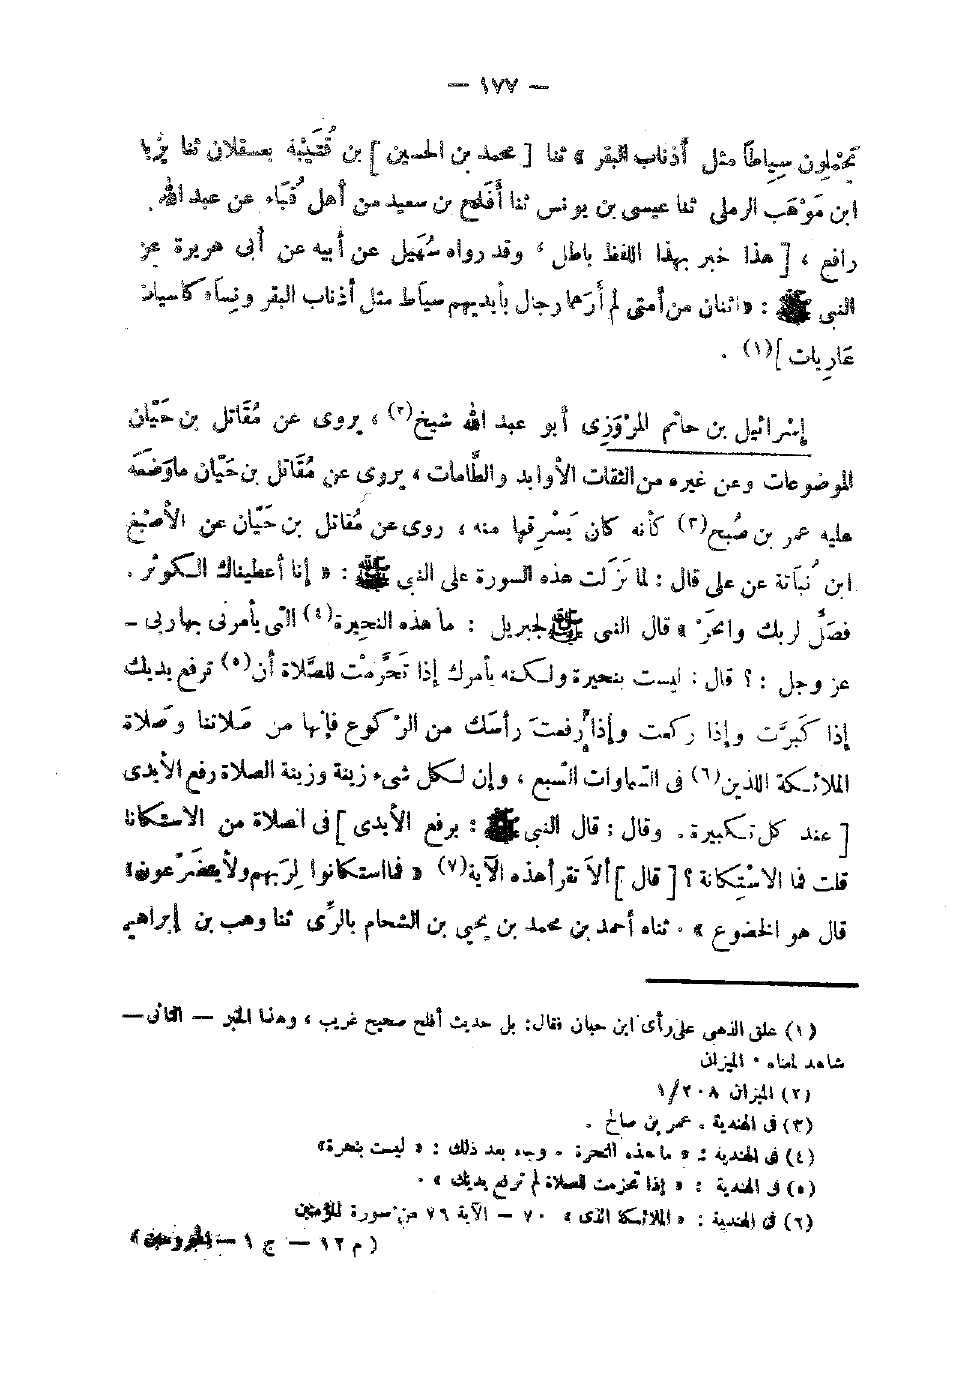 — ١٧٧ —
يَحْمِلون سِياطاً مثل أَذناب البقر » ثنا [ محمد بن الحسين ] بن قُتَيْبة بعسقلان ثنا يزيد
ابن مَوْهَب الرملى ثنا عيسى بن يونس ثنا أَفلح بن سعيد من أهل قُبَاء عن عبد الله بن
رافع ، [ هذا خبر بهذا اللفظ باطل ، وقد رواه سُهَيل عن أبيه عن أبى هريرة عن
النبى ﷺ : « اثنان من أمتى لم أَرَهما رجال بأيديهم سياط مثل أذناب البقر ونِساء كاسيات
عَارِيات ](١) .
إسْرائيل بن حاتم المَرْوَزِى أبو عبد الله شيخ(٢) ، يروى عن مُقَاتل بن حَيَّان
الموضوعات وعن غيره من الثقات الأوابد والطَّامات ، يروى عن مُقَاتل بن حَيَّان ماوَضَعَه
عليه عمر بن صُبح(٣) كأنه كان يَسْرِقها منه ، روى عن مُقاتل بن حَيَّان عن الأَصْبَغ
ابن نُبَاتة عن على قال : لما نَزَلت هذه السورة على النبى ﷺ : « إنا أعطيناك الكوثر .
فصَلِّ لربك وانحَرْ » قال النبى ﷺ لجبريل : ما هذه النحيرة(٤) التى يأمرنى بها ربى ـ
عز وجل : ؟ قال : ليست بنحيرة ولكنه يأمرك إذا تَحَرَّمْت للصَّلاة أن(٥) ترفع يديك
إذا كَبَّرَت وإذا ركعت وإذا رفعتَ رأسَك من الرُكوع فإنها من صَلاتنا وصَلاة
الملائكة اللذين(٦) فى السَّماوات السَّبع ، وإن لكل شىء زينة وزينة الصلاة رفع الأيدى
[ عند كل تكبيرة . وقال : قال النبى ﷺ : برفع الأيدى ] فى الصلاة من الاستكانة
قلت فما الاسْتِكانة ؟ [ قال ] ألاَ تقرأ هذه الآية(٧) « فما استكانوا لِرَبهم ولا يتضَرَّعون »
قال هو الخضوع » . ثناه أحمد بن محمد بن يحيى بن الشحام بالرِّى ثنا وهب بن إبراهيم
(١) علق الذهبى على رأى ابن حبان فقال: بل حديث أفلح صحيح غريب ، وهذا الخبر — الثانى —
شاهد لمعناه . الميزان
(٢) الميزان ٢٠٨ /١
(٣) فى الهندية . عمر بن صالح .
(٤) فى الهندية : « ما هذه النحرة . وجه بعد ذلك : « ليست بنحرة»
(٥) فى الهندية : « إذا تحزمت للصلاة لم ترفع يديك » .
(٦) فى الهندية : « الملائكة الذى » ٧٠ — الآية ٧٦ من سورة المؤمنين
( م ١٢ — ج ١ — المجروحين )